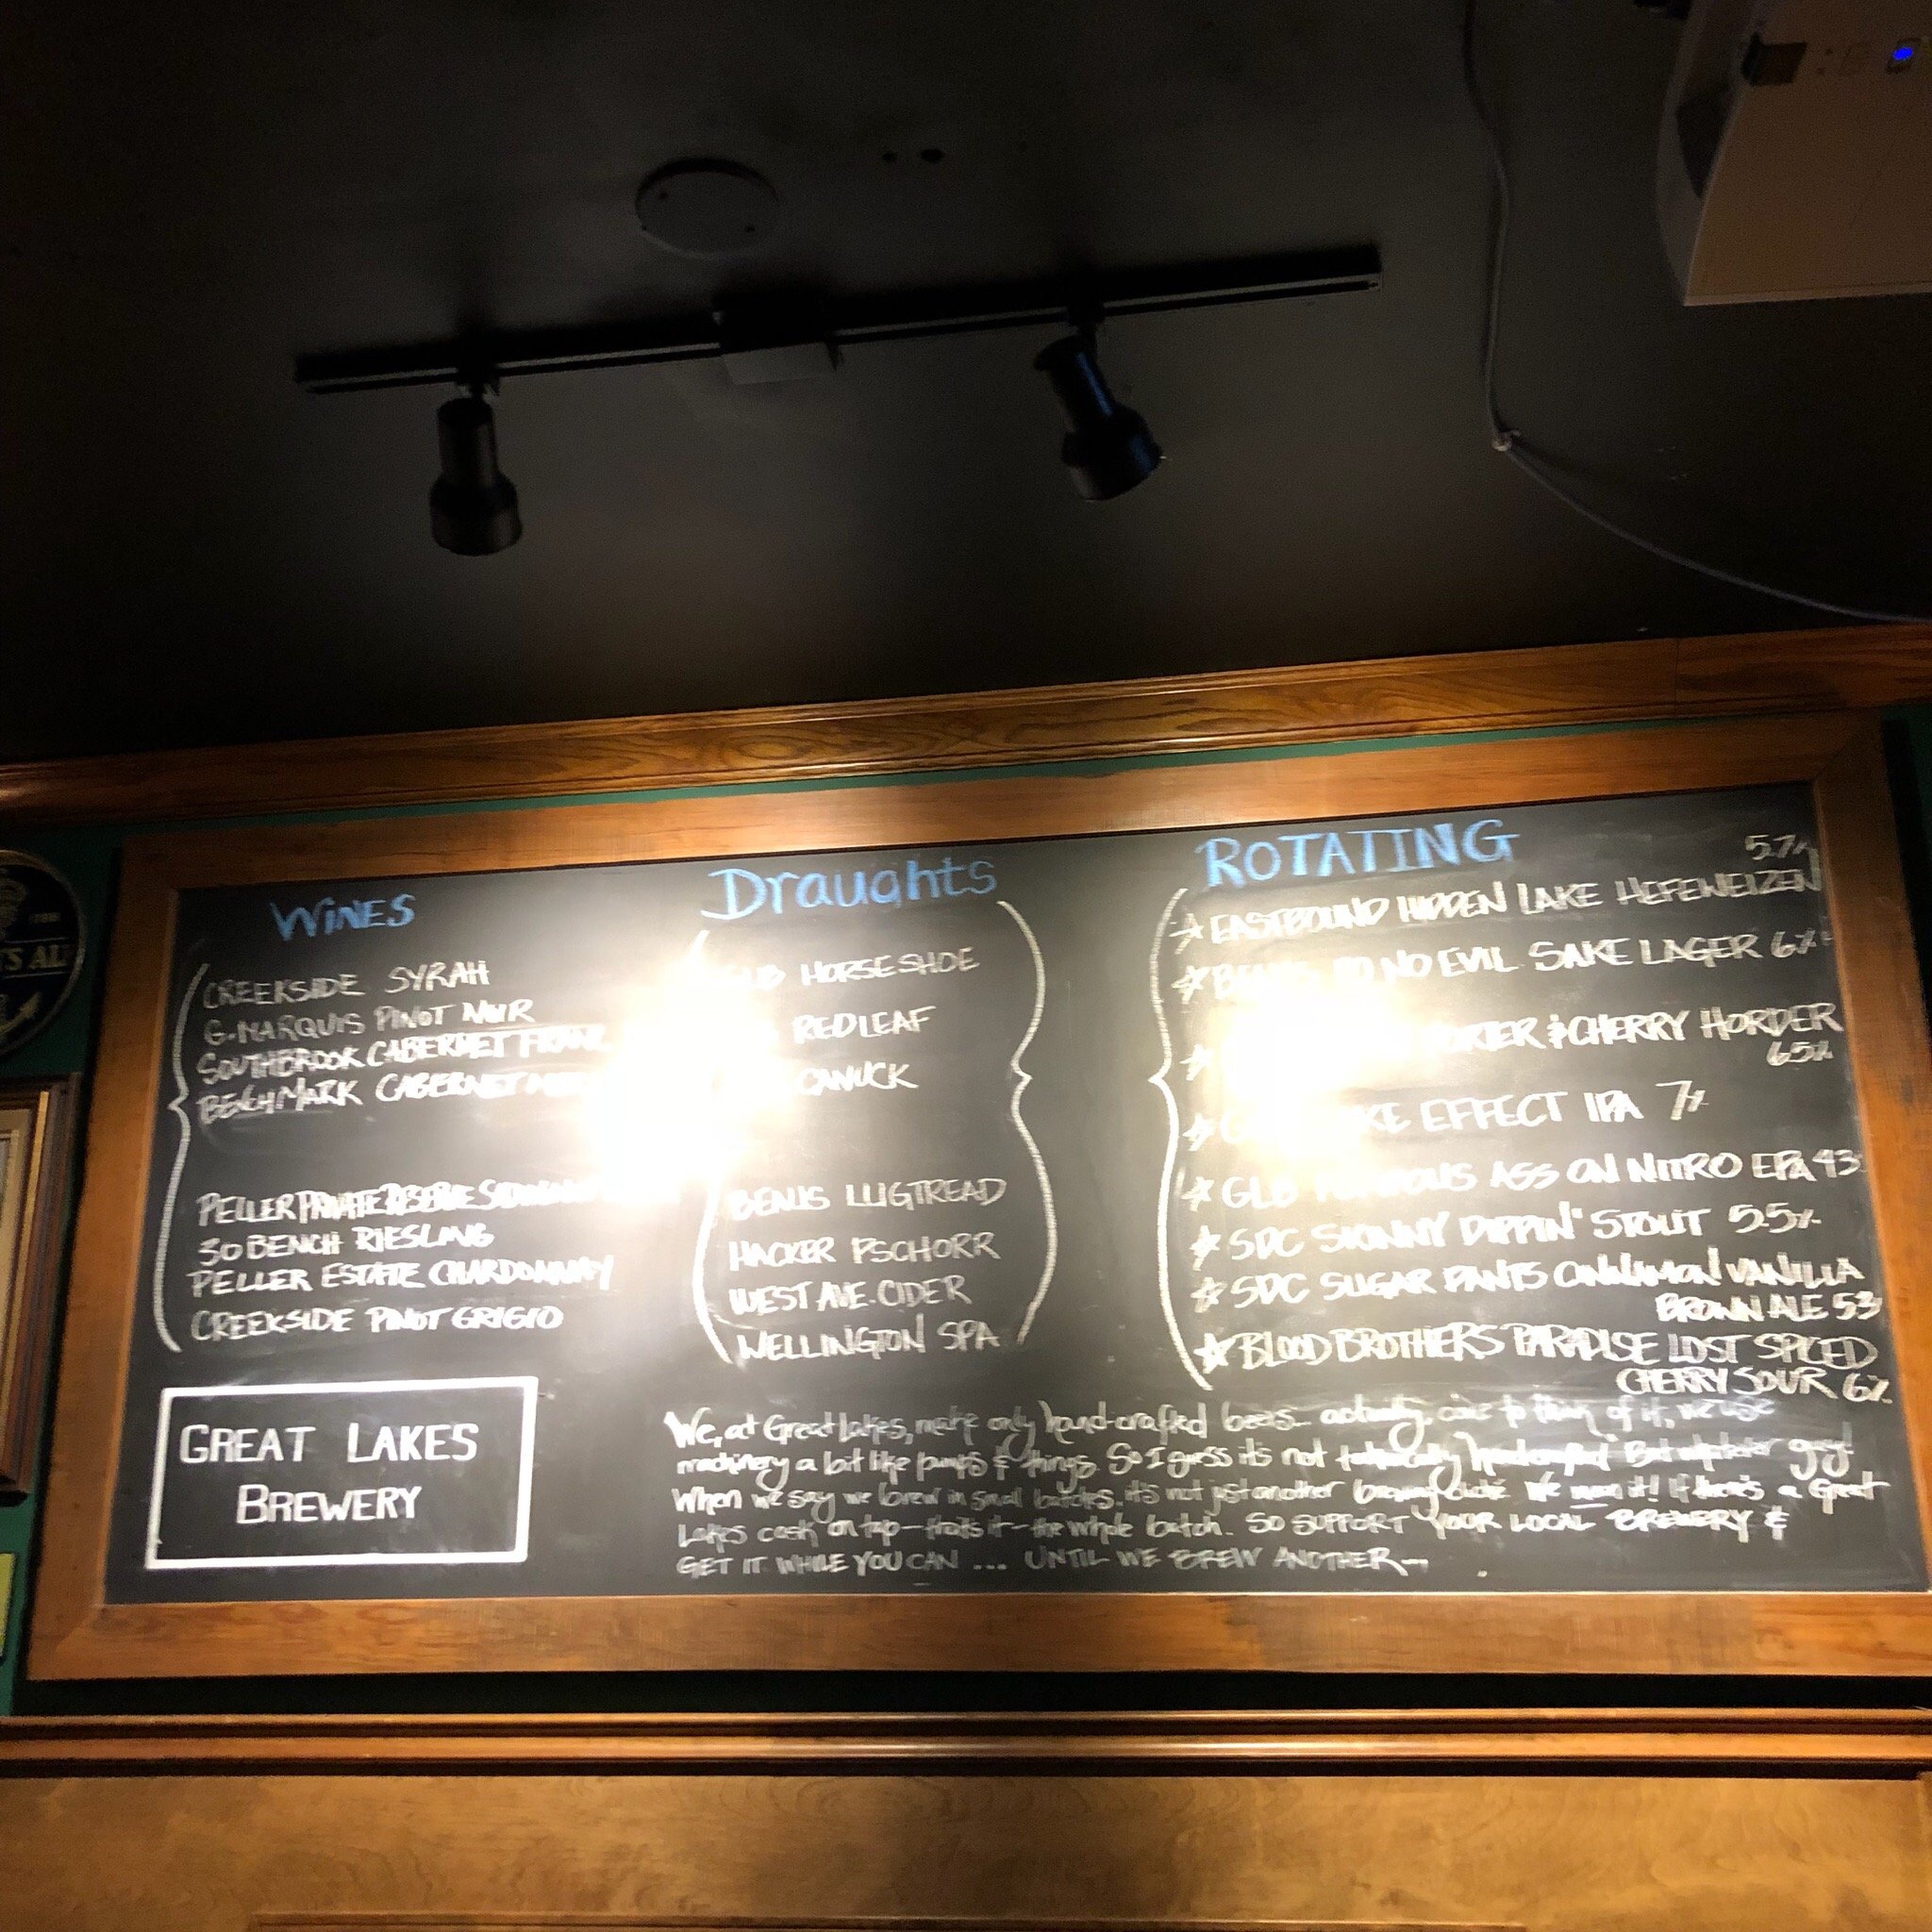 WINES
CREEKSIDE SYRAH
G. MARQUIS PINOT NOIR
SOUTHBROOK CABERNET FRANC
BENCHMARK CABERNET
PELLER PRIVATE RESERVE
30 BENCH RIESLING
PELLER ESTATE CHARDONNAY
CREEKSIDE PINOT GRIGIO
GREAT LAKES
BREWERY
Draughts
HORSESHOE
RED LEAF
CANUCK
BEAUS LUGTREAD
HACKER PSCHORR
WEST AVE. CIDER
WELLINGTON SPA
ROTATING
5.7%
EASTBOUND HIDDEN LAKE HEFEWEIZEN
DO NO EVIL SAKE LAGER 6%
PORTER & CHERRY HORDER
6.5%
EFFECT IPA 7%
GLB ASS ON NITRO EPA 4.3
SDC SKINNY DIPPIN' STOUT 5.5%
SDC SUGAR PANTS CINNAMON VANILLA
BROWN ALE 5.3
BLOOD BROTHERS PARADISE LOST SPICED
CHERRY SOUR 6%
We, at Great Lakes, make only hand-crafted beers... actually, come to think of it, we use
machinery a bit like pumps & things. So I guess it's not technically "handcrafted" But whatever guy!
When we say we brew in small batches, it's not just another brewing cliché. We mean it! If there's a Great
Lakes cask on tap - that's it - the whole batch. SO SUPPORT YOUR LOCAL BREWERY &
GET IT WHILE YOU CAN ... UNTIL WE BREW ANOTHER
'S AL